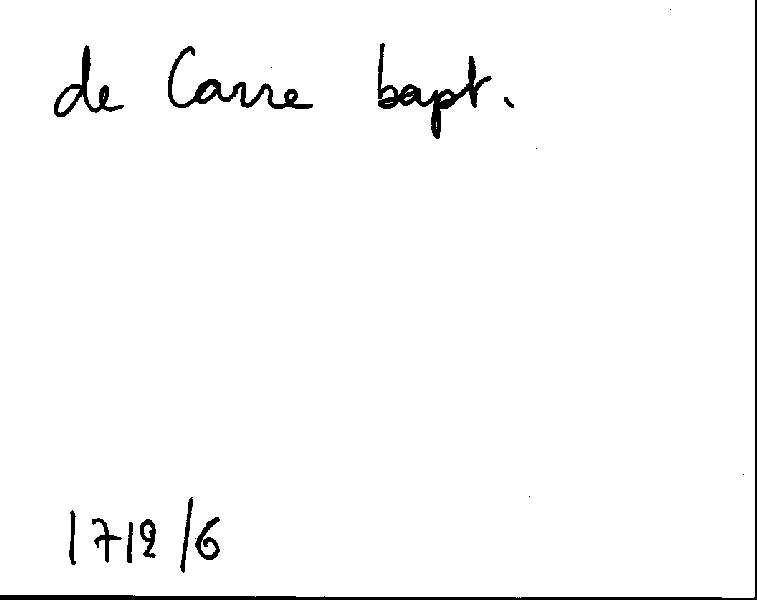 de Carre bapt.
1712/6